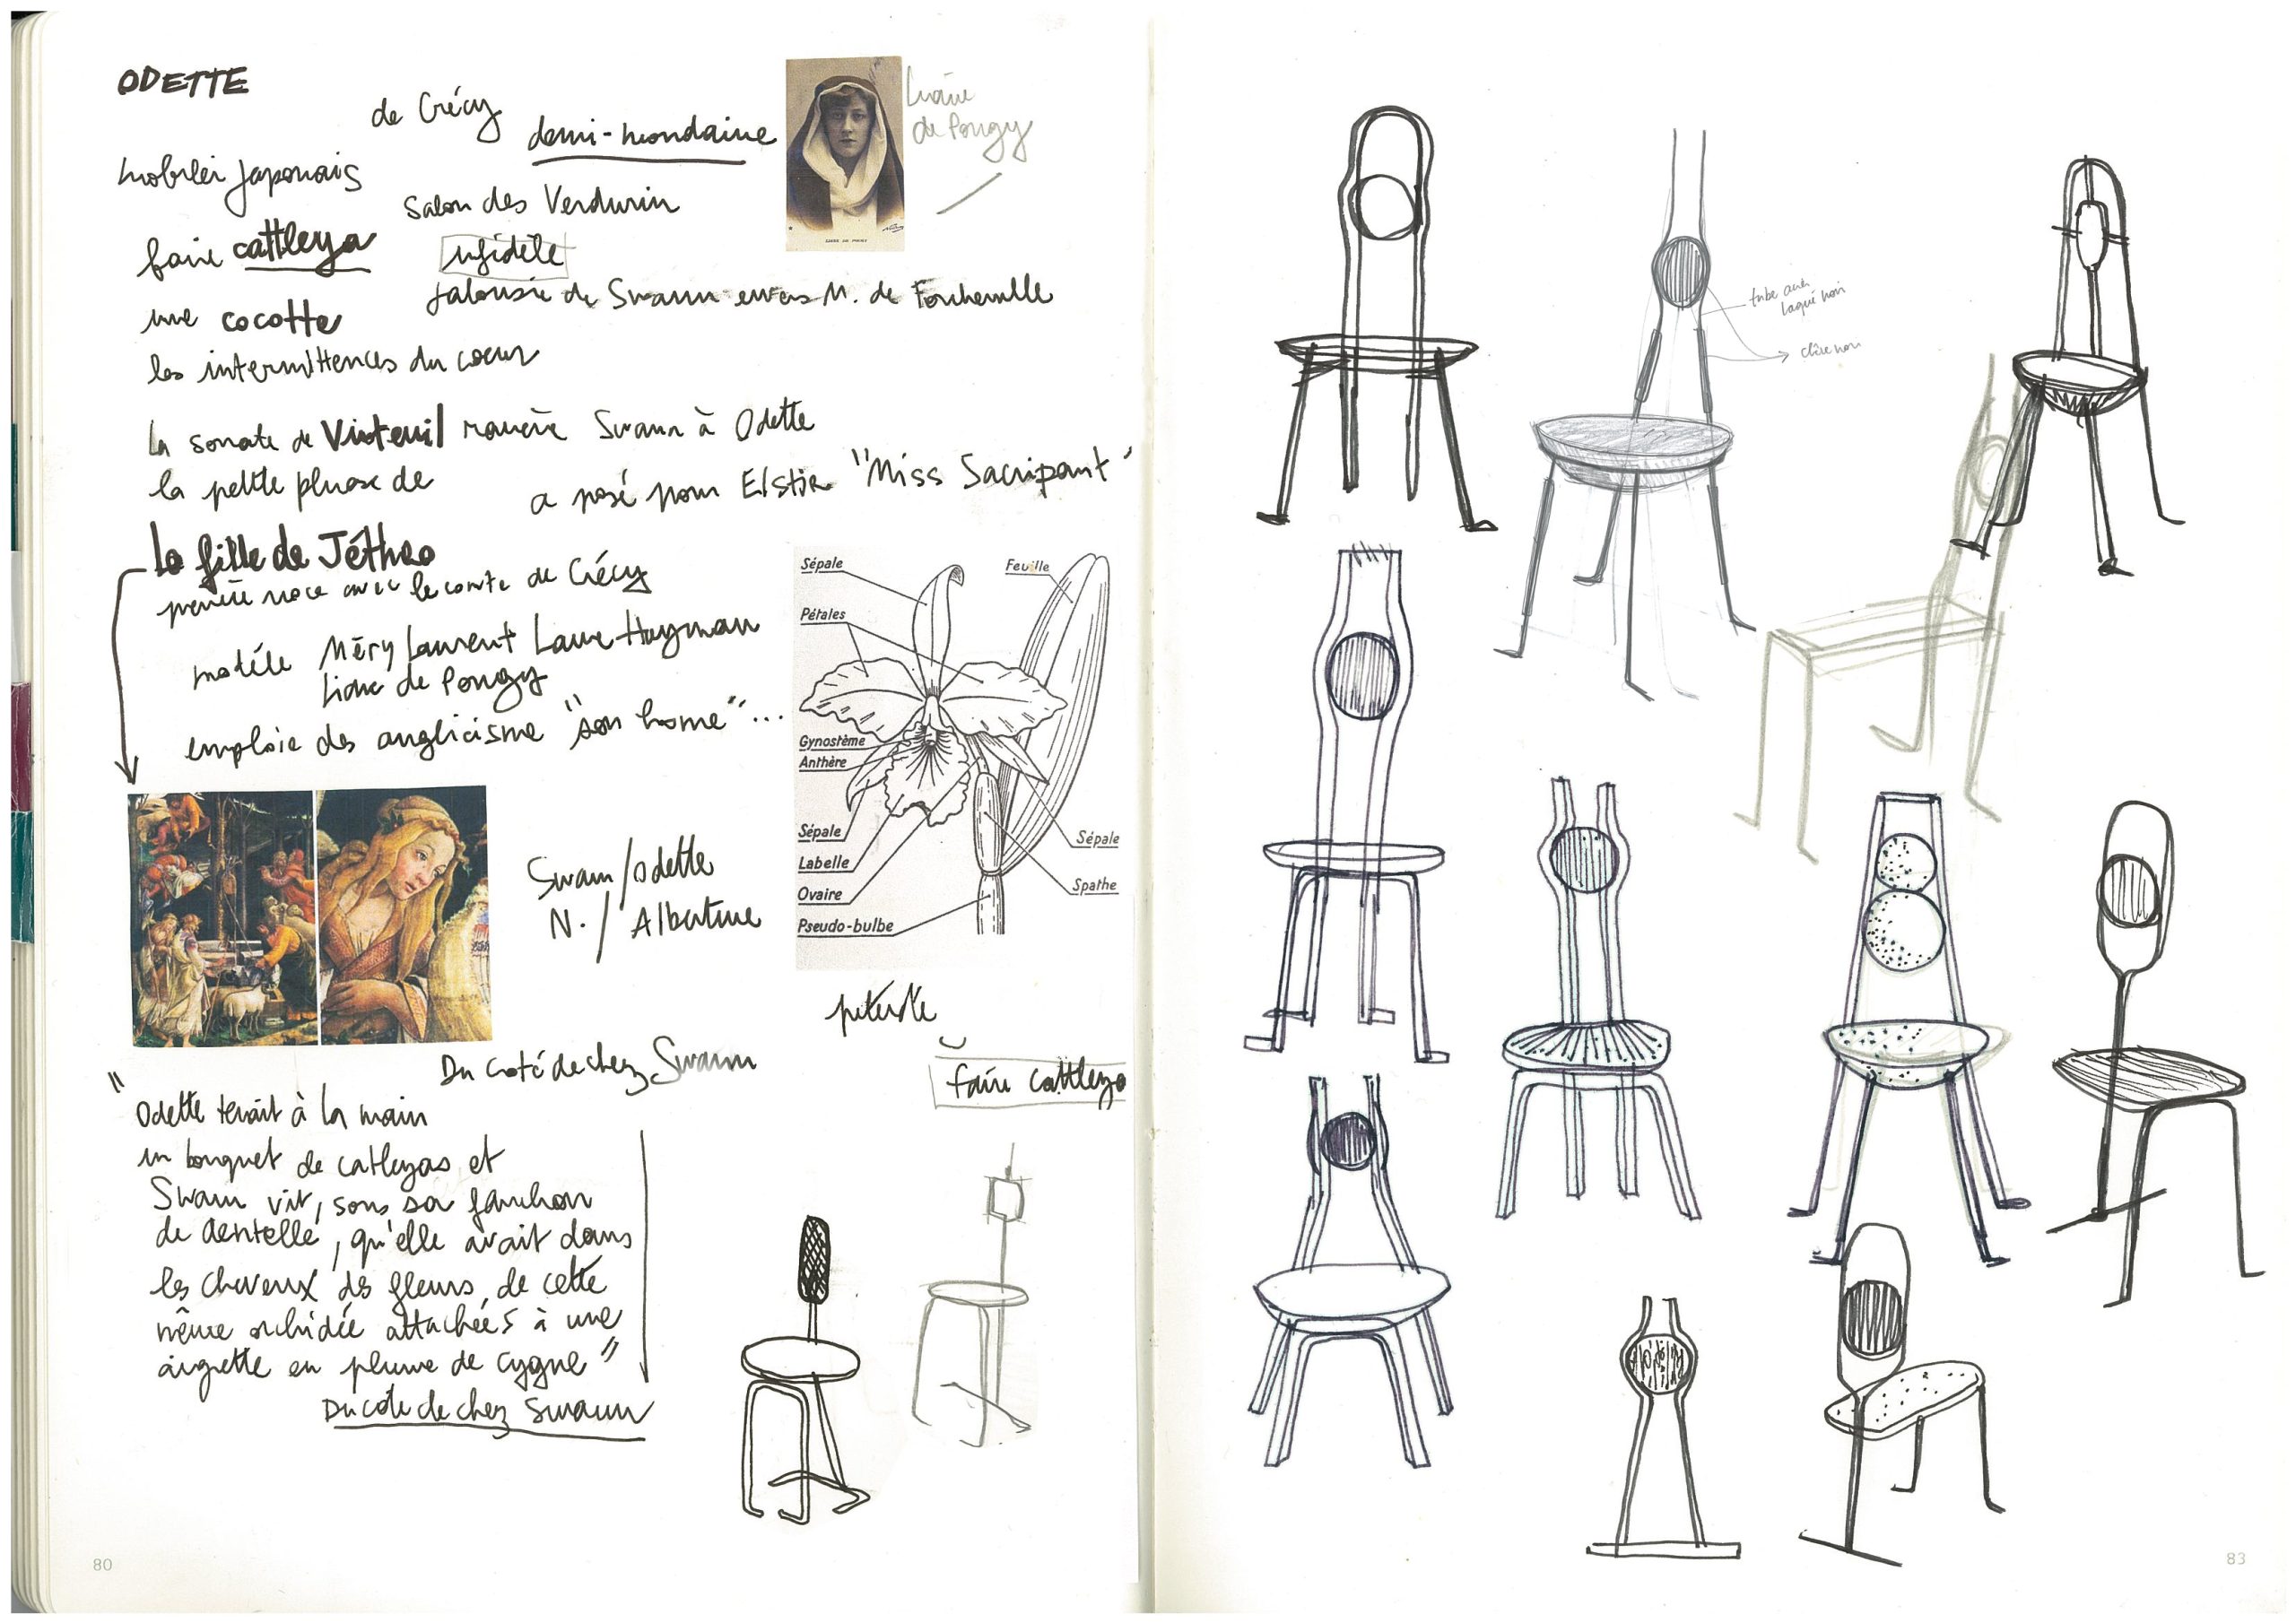 ODETTE
de Crécy
demi-mondaine
Liane
de Pougy
LIANE DE POUGY
mobilier Japonais
Salon des Verdurin
faire cattleya
infidèle
Jalousie de Swann envers M. de Forcheville
une cocotte
les intermittences du coeur
La sonate de Vinteuil ramène Swann à Odette
la petite phrase de
a posé pour Elstir "Miss Sacripant"
La fille de Jéthro
première noce avec le comte de Crécy
modèle Méry Laurent Laure Hayman
Liane de Pougy
emploie des anglicisme "son home"...
Sépale
Feuille
Pétales
Gynostème
Anthère
Sépale
Labelle
Ovaire
Pseudo-bulbe
Sépale
Spathe
Swann/Odette
N./Albertine
Du côté de chez Swann
faire cattleya
"Odette tenait à la main
un bouquet de catleyas et
Swann vit, sous sa fanchon
de dentelle, qu'elle avait dans
les cheveux des fleurs de cette
même orchidée attachées à une
aigrette en plume de cygne"
Du côté de chez Swann
tube
laqué noir
80
83